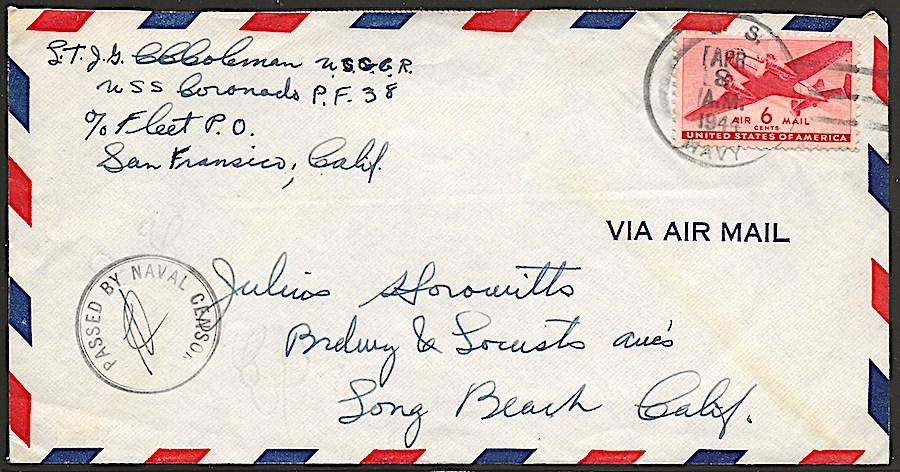 S.T. J.G. CCColeman U.S.C.G.R.
USS Coronado P.F. 38
% Fleet P.O.
San Fransico, Calif.
U. S.
APR
8
A.M.
1944
NAVY
AIR 6 MAIL
CENTS
UNITED STATES OF AMERICA
VIA AIR MAIL
PASSED BY NAVAL CENSOR
Julius Horowitts
Brdwy & Locusts aves
Long Beach Calif.